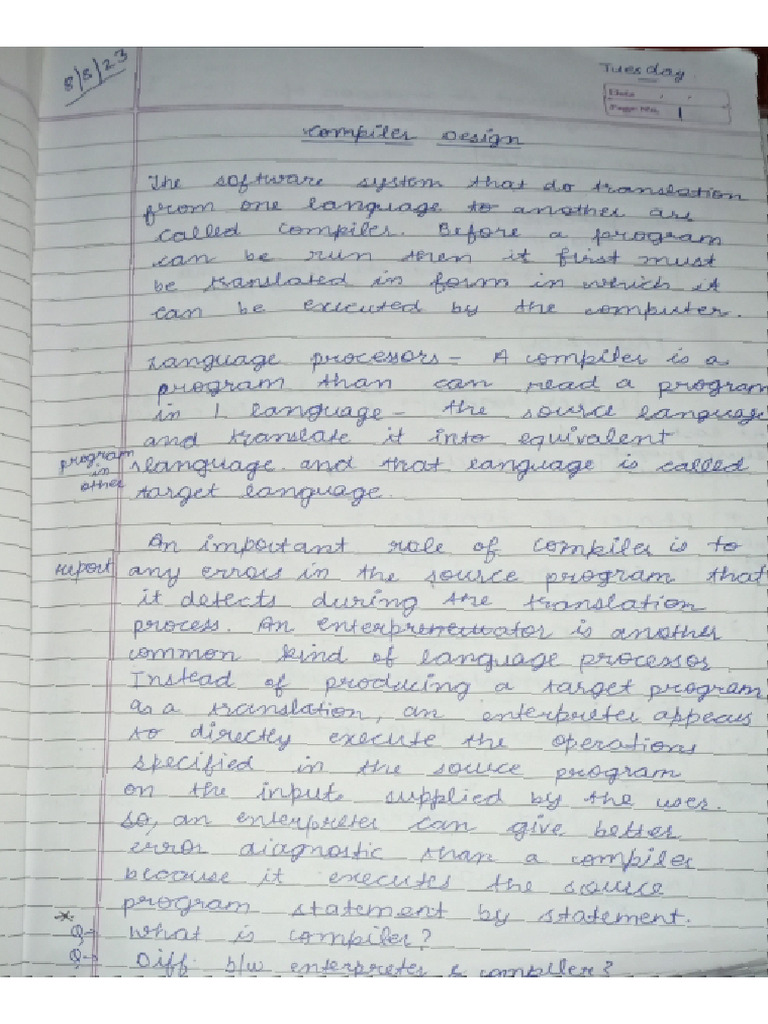 8/8/23
Tuesday
Date
Page No. 1
Compiler Design
The software system that do translation
from one language to another are
called compiler. Before a program
can be run then it first must
be translated in form in which it
can be executed by the computer.
Language processors - A compiler is a
program than can read a program
in 1 language - the source language
and translate it into equivalent
program in other language and that language is called
target language.
An important role of compiler is to
report any errors in the source program that
it detects during the translation
process. An is another
common kind of language processor.
Instead of producing a target program
as a translation, an enterpreter appears
to directly execute the operations
specified in the source program
on the input supplied by the user.
So, an enterpreter can give better
error diagnostic than a compiler
because it executes the source
program statement by statement.
* Q→ What is compiler?
Q→ Diff. b/w enterpreter & compiler?